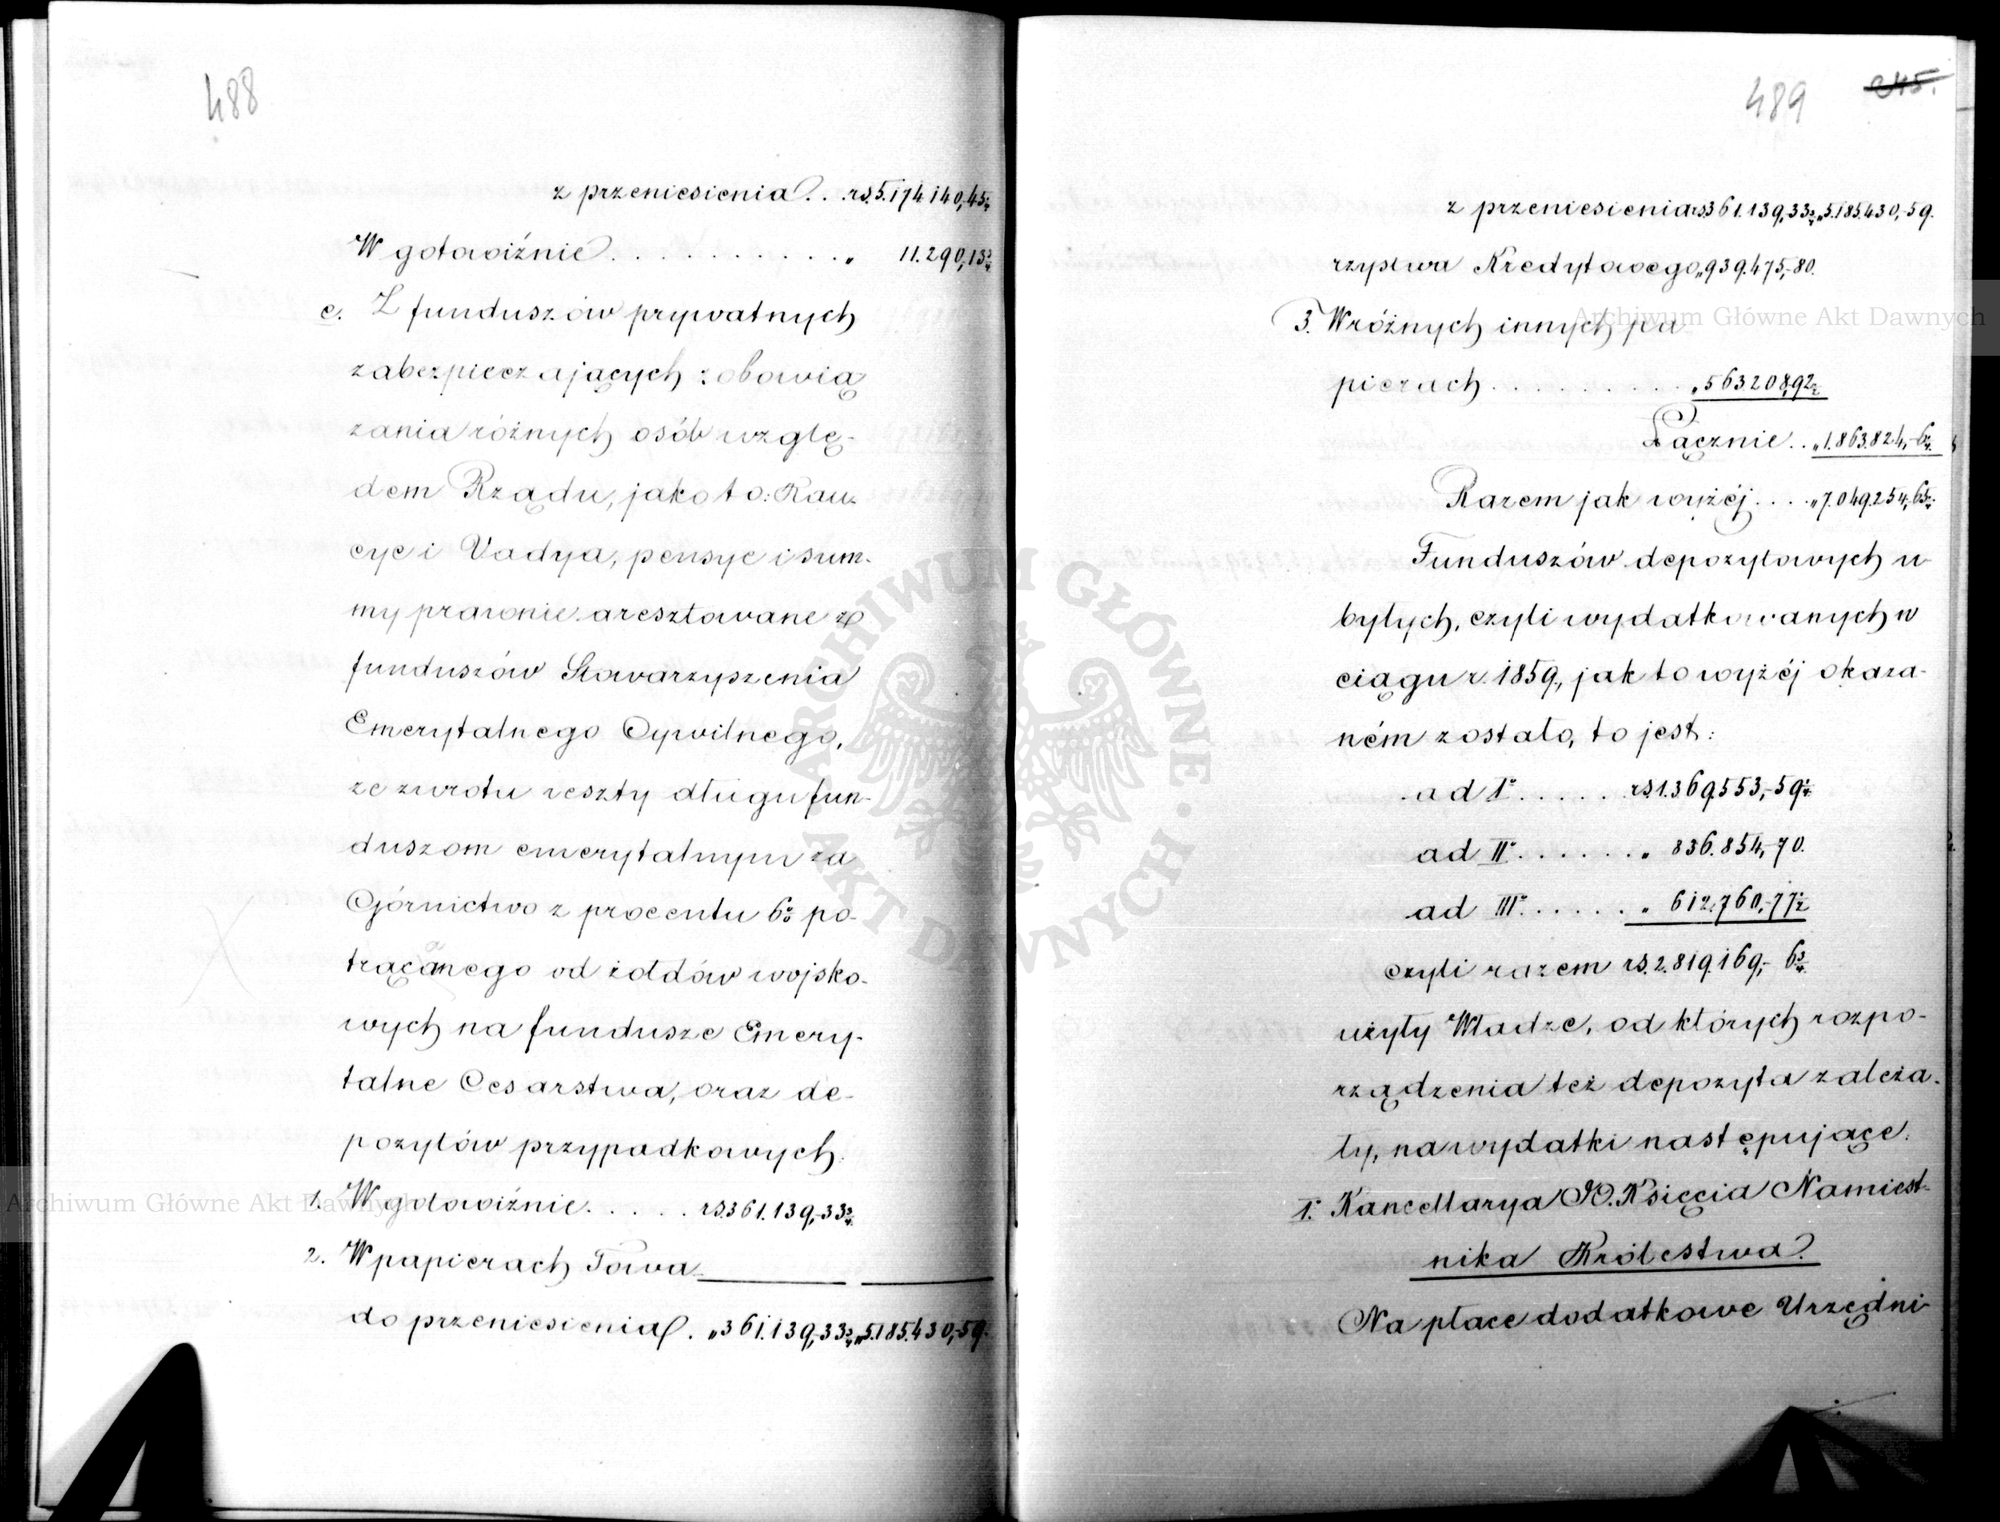 488
z przeniesienia . . rs. 5.174.140,45¼
W gotowiźnie . . . . . . . . . . . „ 11.290,13¾
c. Z funduszów prywatnych
zabezpieczających zobowią
zania różnych osób wzglę-
dem Rządu, jako to: Kau-
cye i Vadya, pensye i sum-
my prawnie aresztowane z
funduszów Stowarzyszenia
Emerytalnego Cywilnego,
ze zwrotu reszty długu fun-
duszom emerytalnym za
Górnictwo z procentu 6% po-
trącanego od żołdów wojsko-
wych na fundusze Emery-
talne Cesarstwa, oraz de-
pozytów przypadkowych.
1. W gotowiźnie . . . . . rs. 361.139,-33¾
2. W papierach Towa
do przeniesienia . „ 361.139,-33¾ „ 5.185.430,-59.
489 245.
z przeniesienia rs 361.139,33¾ „ 5.185.430,-59.
rzystwa Kredytowego „ 939.475,-80.
3. W różnych innych pa
pierach . . . . . . . . . „ 563208,92½
Łącznie . . „ 1.863.824,-6¼
Razem jak wyżéj . . . „ 7.049.254,-65¼
Funduszów depozytowych u-
bytych, czyli wydatkowanych w
ciągu r. 1859, jak to wyżéj okaza-
ném zostało, to jest:
ad I° . . . . . rs. 1.369.553,-59¼
ad II° . . . . . . „ 836.854,-70.
ad III° . . . . . „ 612.760,-77½
czyli razem rs. 2.819.169,- 6¾
użyły Władze, od których rozpo-
rządzenia też depozyta zależa-
ły, na wydatki następujące.
1. Kancellarya JO. Księcia Namiest-
nika Królestwa
Na płace dodatkowe Urzędni-
Archiwum Główne Akt Dawnych
Archiwum Główne Akt Dawnych
ARCHIWUM GŁÓWNE AKT DAWNYCH